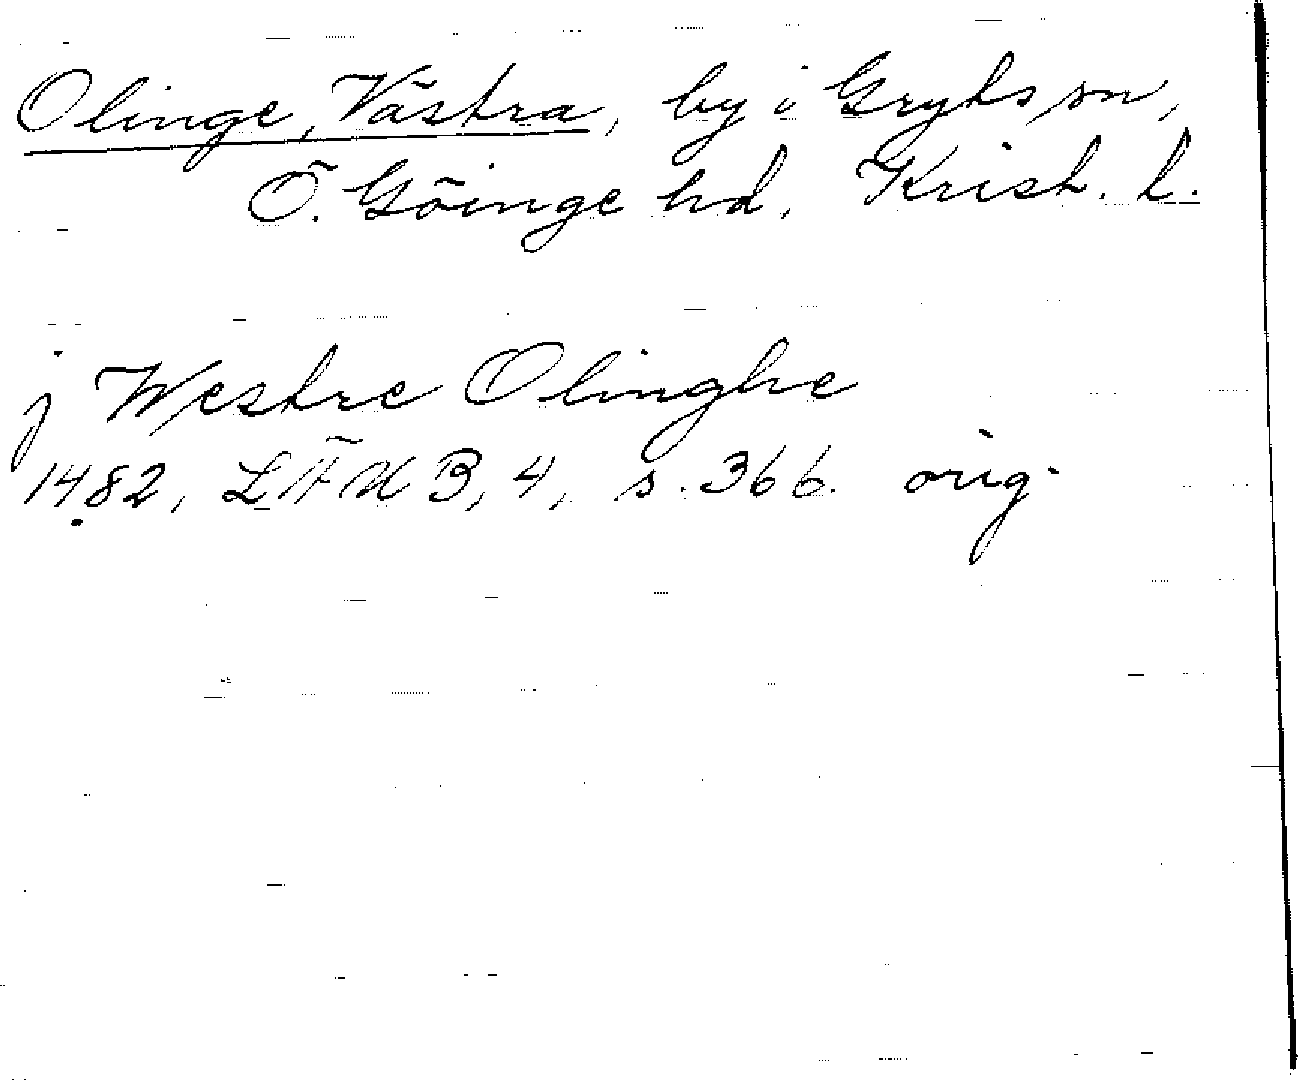 Olinge, Västra, by i Gryts sn,
Ö. Göinge hd, Krist. l.
j Westre Olinghe
1482, LÄUB, 4, s. 366. orig.